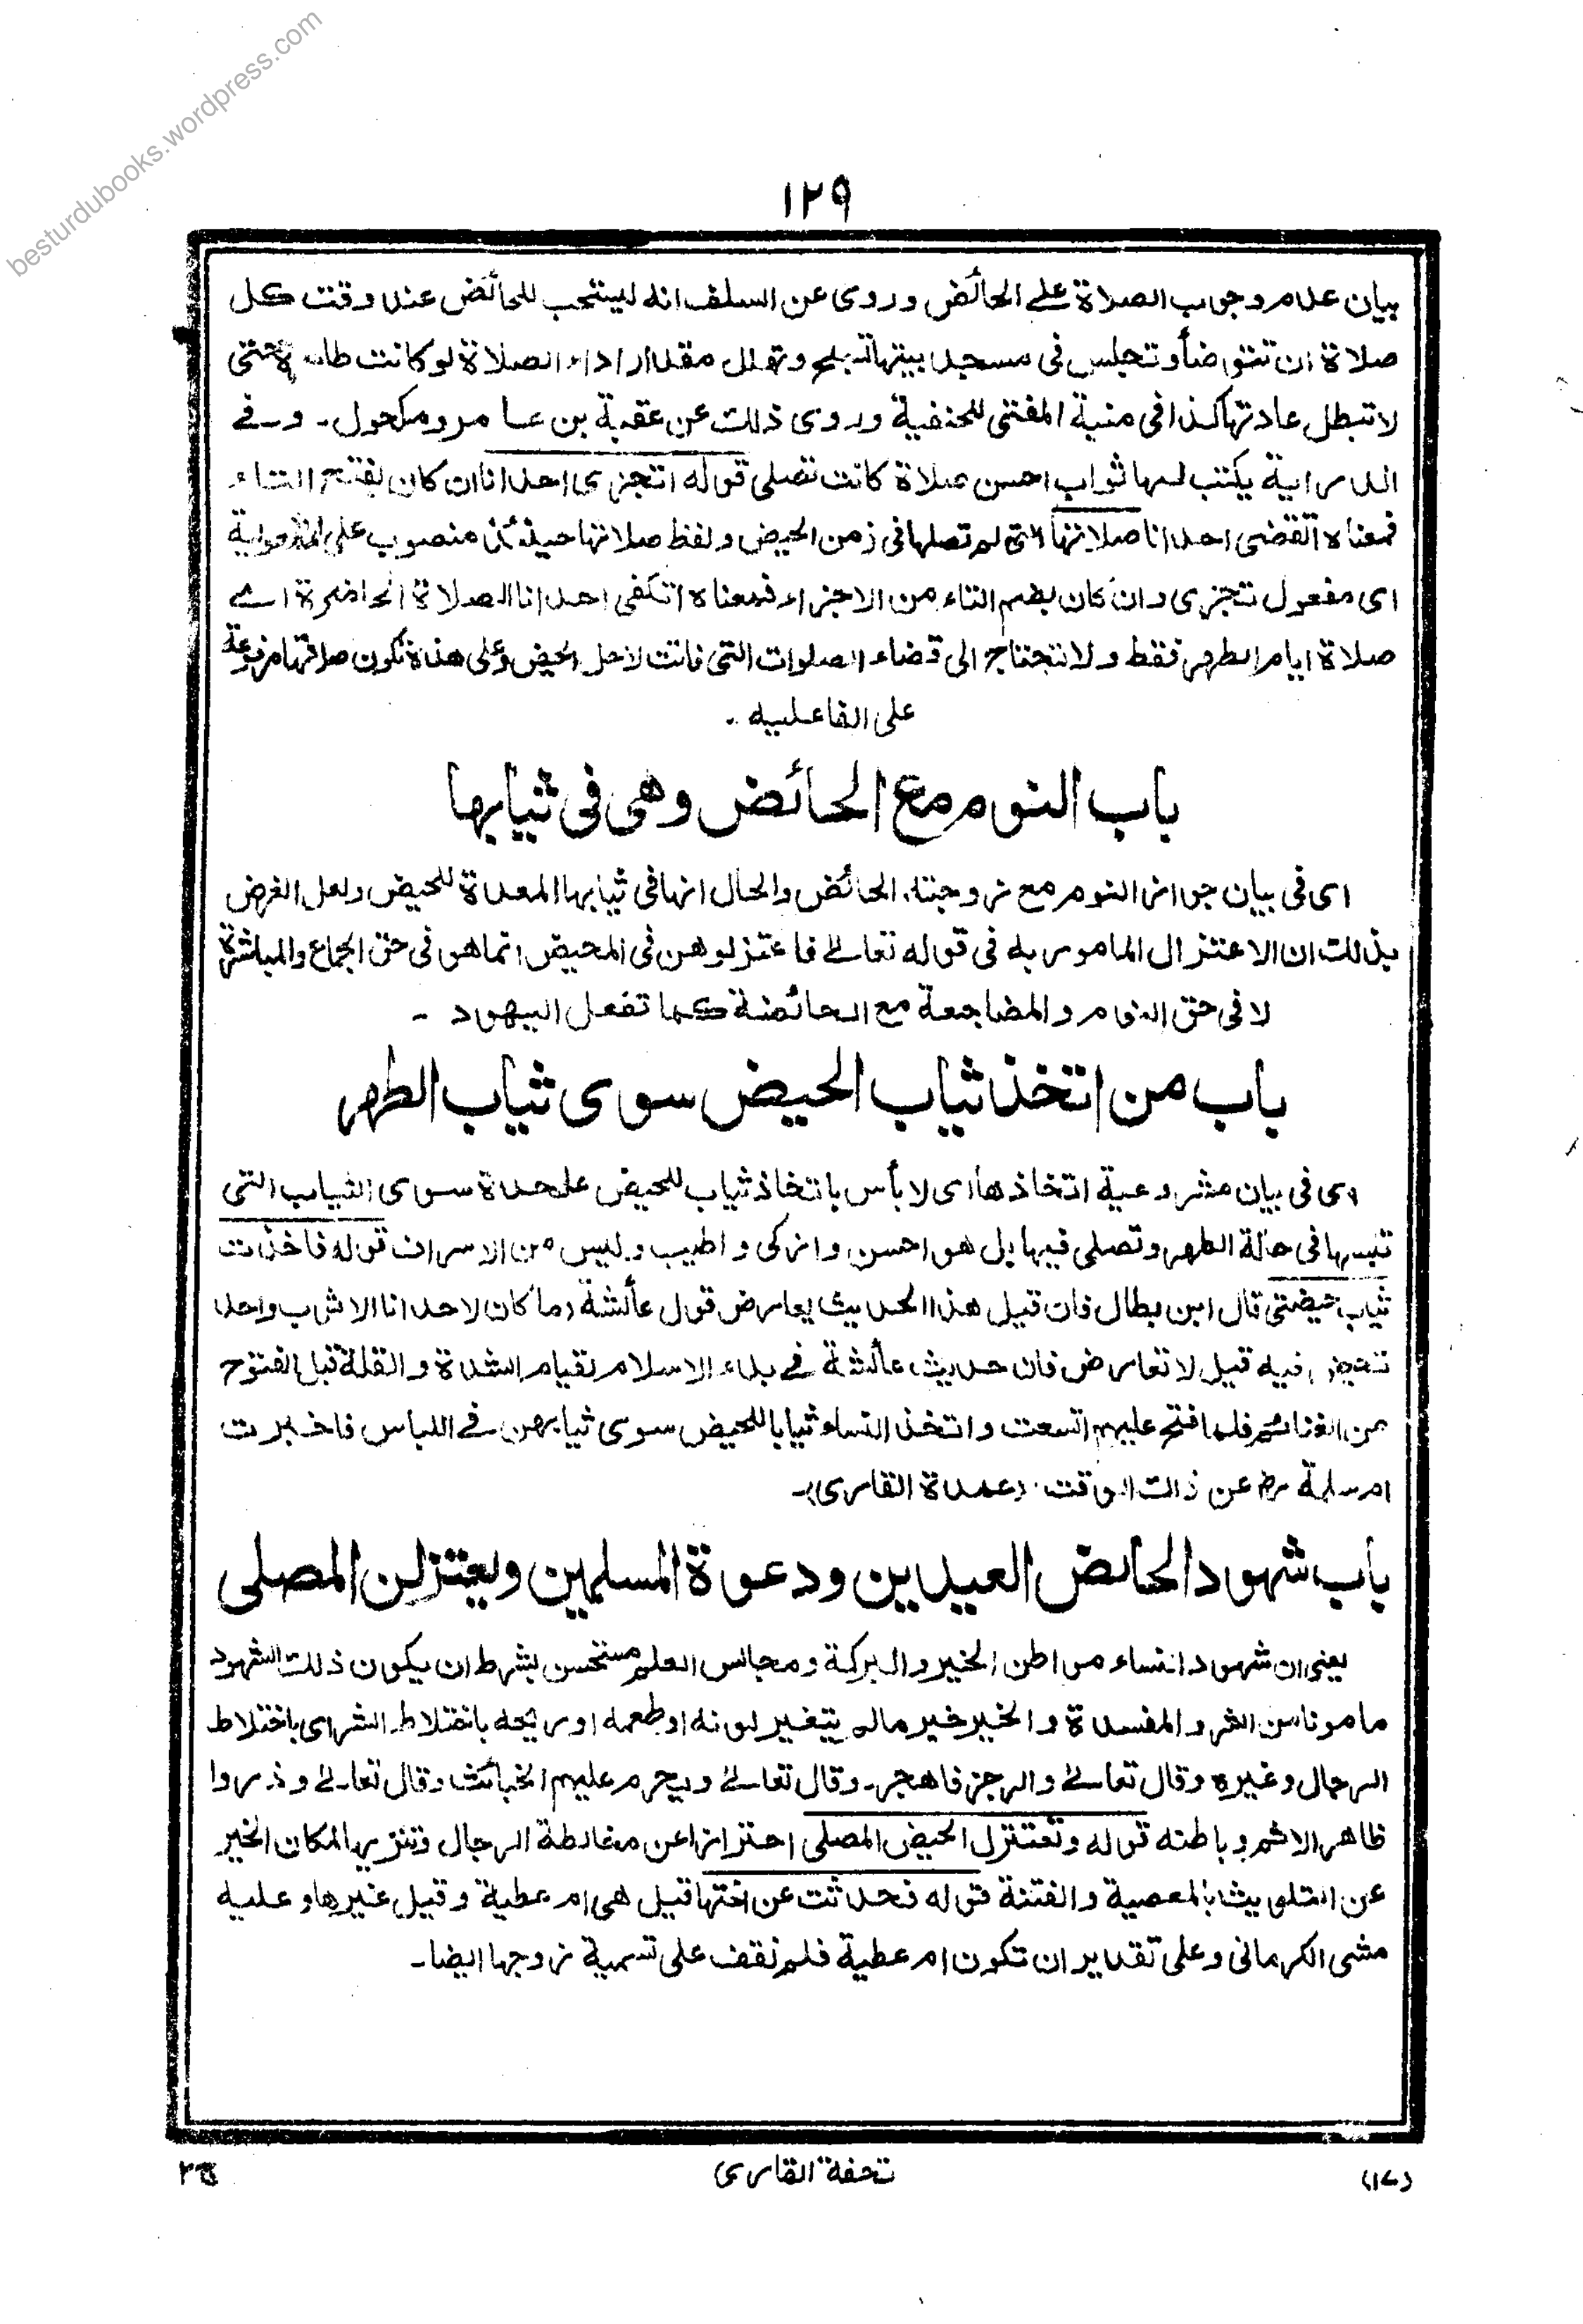 besturdubooks.wordpress.com
١٢٩
بيان عدم وجوب الصلاة على الحائض وروى عن السلف انه ليستحب للحائض عند وقت كل
صلاة ان تتوضأ وتجلس فى مسجد بيتها تسبح وتهلل مقدار اداء الصلاة لو كانت طاهرة حتى
لا تبطل عادتها كذا فى منية المفتى للحنفية وروى ذلك عن عقبة بن عامر ومكحول ـ وفى
الدراية يكتب لها ثواب احسن صلاة كانت تصلى قوله اتجزى احدانا ان كان بفتح التاء
فمعناه اتقضى احدانا صلاتها التى لم تصلها فى زمن الحيض ولفظ صلاتها حينئذ منصوب على المفعولية
اى مفعول تتجزى وان كان بضم التاء من الاجزاء فمعناه اتكفى احدانا الصلاة الحاضرة اى
صلاة ايام الطهر فقط ولا تحتاج الى قضاء الصلوات التى فاتت لاجل الحيض وعلى هذه تكون صلاتها مرفوعة
على الفاعليه ـ
باب النوم مع الحائض وهى فى ثيابها
اى فى بيان جواز النوم مع زوجته الحائض والحال انها فى ثيابها المعدة للحيض ولعل الغرض
بذلك ان الاعتزال المامور به فى قوله تعالى فاعتزلوهن فى المحيض انما هو فى حق الجماع والمباشرة
لا فى حق النوم والمضاجعة مع الحائضة كما تفعل اليهود ـ
باب من اتخذ ثياب الحيض سوى ثياب الطهر
اى فى بيان مشروعية اتخاذها اى لا بأس باتخاذ ثياب للحيض علحدة سوى الثياب التى
تلبسها فى حالة الطهر وتصلى فيها بل هو احسن وازكى واطيب وليس من الاسراف قوله فاخذت
ثياب حيضتى قال ابن بطال فان قيل هذا الحديث يعارض قول عائشة (ما كان لاحدانا الا ثوب واحد
تحيض) فيه قيل لا تعارض فان حديث عائشة فى بدء الاسلام لقيام الشدة والقلة قبل الفتوح
من الغنائم فلما فتح عليهم اتسعت واتخذ النساء ثيابا للحيض سوى ثيابهن فى اللباس فاخبرت
ام سلمة رض عن ذلك الوقت ـ (عمدة القارى) ـ
باب شهود الحائض العيدين ودعوة المسلمين ويعتزلن المصلى
يعنى ان شهود النساء مواطن الخير والبركة ومجالس العلم مستحسن بشرط ان يكون ذلك الشهود
مامونا من الشر والمفسدة والخير خير مالم يتغير لونه او طعمه او ريحه باختلاط الشر اى باختلاط
الرجال وغيره وقال تعالى والرجز فاهجر ـ وقال تعالى ويحرم عليهم الخبائث وقال تعالى وذروا
ظاهر الاثم وباطنه قوله وتعتزل الحيض المصلى احترازا عن مخالطة الرجال وتنزيها لمكان الخير
عن التلويث بالمعصية والفتنة قوله فحدثت عن اختها قيل هى ام عطية وقيل غيرها وعليه
مشى الكرمانى وعلى تقدير ان تكون ام عطية فلم نقف على تسمية زوجها ايضا ـ
(١٧)
تحفة القارى
ج٢